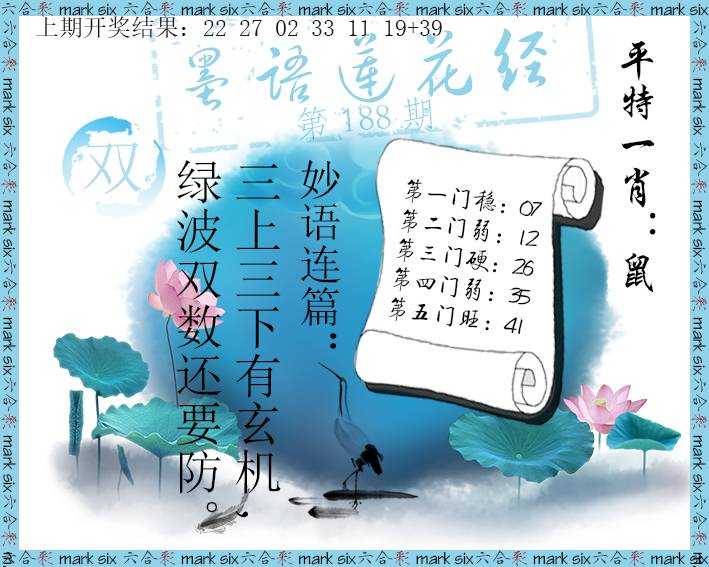 上期开奖结果：22 27 02 33 11 19+39
墨语莲花经
第 188 期
双
平特一肖：鼠
妙语连篇：
三上三下有玄机，
绿波双数还要防。
第一门稳：07
第二门弱：12
第三门硬：26
第四门弱：35
第五门旺：41
mark six 六合彩 mark six 六合彩 mark six 六合彩 mark six 六合彩 mark six 六合彩